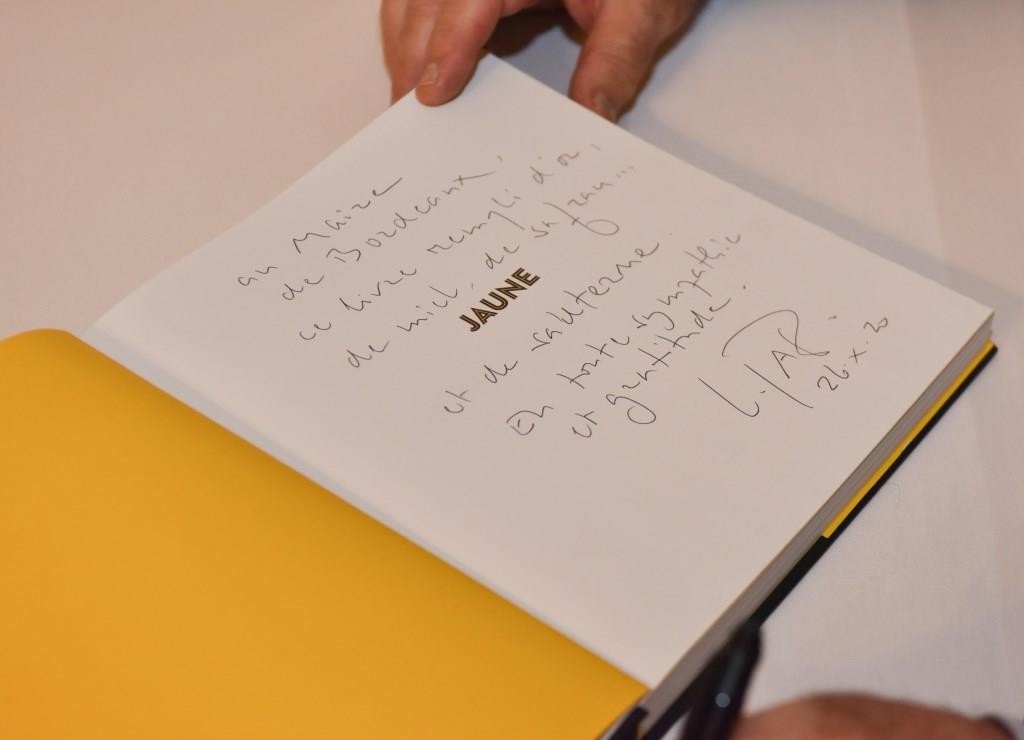 au Maire
de Bordeaux,
ce livre rempli d'or,
de miel, de safran...
JAUNE
et de
En toute sympathie
et gratitude.
26.X.20